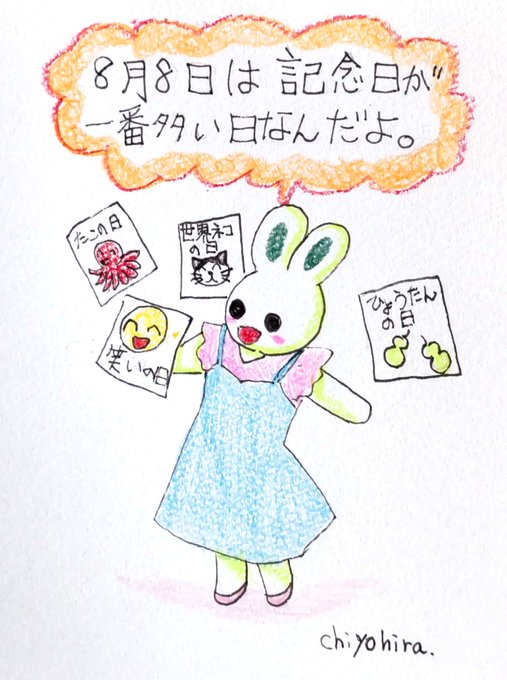 8月8日は記念日が
一番多い日なんだよ。
たこの日
世界ネコ
の日
笑いの日
ひょうたん
の日
chiyohira.